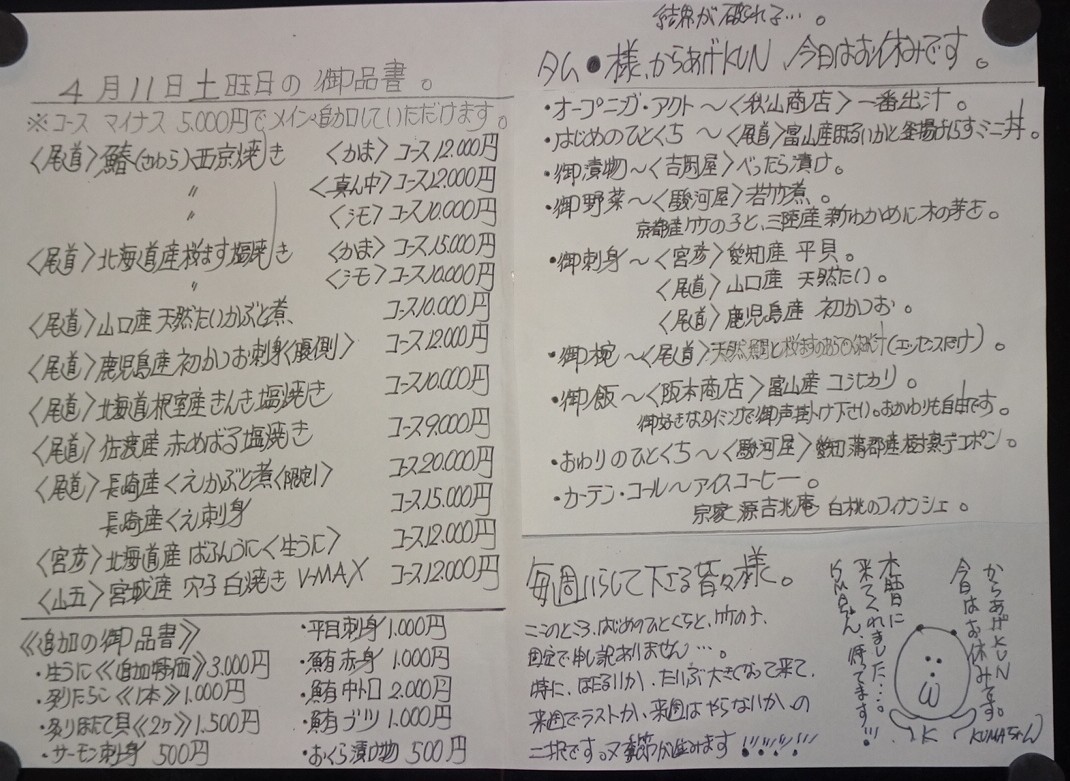 4月11日土曜日の御品書。
※コース マイナス 5.000円でメイン追加していただけます。
〈尾道〉鰆(さわら)西京焼き 〈かま〉コース12.000円
〃 〈真ん中〉コース12.000円
〃 〈シモ〉コース10.000円
〈尾道〉北海道産桜ます塩焼き 〈かま〉コース15.000円
〃 〈シモ〉コース10.000円
〈尾道〉山口産 天然たいかぶと煮 コース10.000円
〈尾道〉鹿児島産 初かつお刺身〈腹側〉 コース12.000円
〈尾道〉北海道根室産きんき塩焼き コース10.000円
〈尾道〉佐渡産 赤めばる塩焼き コース9.000円
〈尾道〉長崎産くえかぶと煮〈限定1〉 コース20.000円
長崎産くえ刺身 コース15.000円
〈宮彦〉北海道産 ばふんうに〈生うに〉 コース12.000円
〈山五〉宮城産 穴子白焼き V-MAX コース12.000円
《追加の御品書》
・生うに《追加特価》3.000円
・炙りたらこ《1本》1.000円
・炙りほたて貝《2ヶ》1.500円
・サーモン刺身 500円
・平目刺身 1.000円
・鮪赤身 1.000円
・鮪中トロ 2.000円
・鮪ブツ 1.000円
・おくら漬け物 500円
結界が破れる…。
タム●様、からあげKUN 今日はお休みです。
・オープニング・アクト〜〈秋山商店〉一番出汁。
・はじめのひとくち〜〈尾道〉富山産ほたるいかと釜揚げしらすミニ丼。
・御漬物〜〈吉岡屋〉べったら漬け。
・御野菜〜〈駿河屋〉若竹煮。
京都産竹の子と、三陸産新わかめに木の芽を。
・御刺身〜〈宮彦〉愛知産 平貝。
〈尾道〉山口産 天然たい。
〈尾道〉鹿児島産 初かつお。
・御椀〜〈尾道〉天然鯛と桜ますのあらの潮汁(エッセンスだけ)。
・御飯〜〈阪本商店〉富山産 コシヒカリ。
御好きなタイミングで御声掛け下さい。おかわりも自由です。
・おわりのひとくち〜〈駿河屋〉愛知蒲郡産樹熟デコポン。
・カーテン・コール〜アイスコーヒー。
宗家 源吉兆庵 白桃のフィナンシェ。
毎週いらして下さる皆々様へ。
ここのところ、はじめのひとくちと、竹の子、
固定で申し訳ありません…。
特に、ほたるいか、だいぶ大きくなって来て、
来週でラストか、来週はやらないか、の
二択です。又季節が進みます!!!!!!
からあげKUN
今日はお休みです。
木曜日に
来てくれました…。
KUMAちゃん、待ってます!!!
K KUMAちゃん